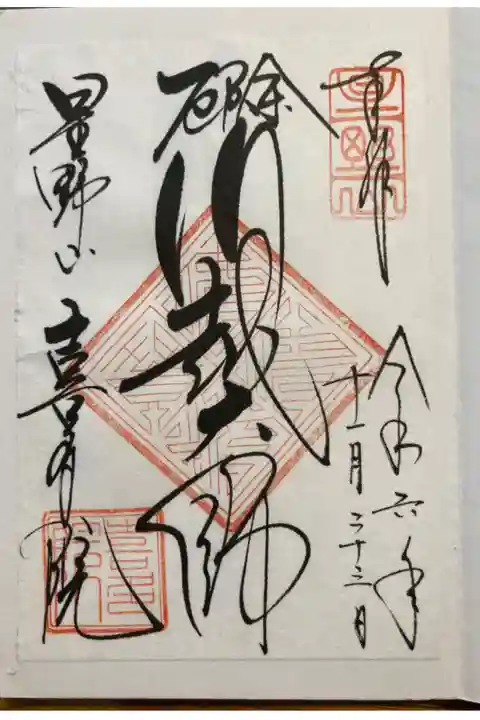 奉拝
令和六年
十一月二十三日
厄除
川越大師
星野山 喜多院